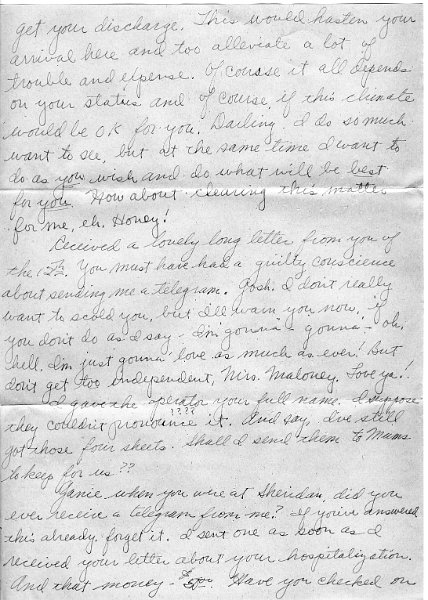 get your discharge. This would hasten your
arrival here and too alleviate a lot of
trouble and expense. Of course it all depends
on your status and of course, if this climate
would be OK for you. Darling, I do so much
want to see, but at the same time I want to
do as you wish and do what will be best
for you. How about clearing this matter
for me, eh, Honey!
Received a lovely long letter from you of
the You must have had a guilty conscience
about sending me a telegram. Gosh, I don't really
want to scold you, but I'll warn you now, if
you don't do as I say - I'm gonna - gonna - oh,
hell, I'm just gonna love as much as ever! But
don't get too independent, Mrs. Maloney. Love ya!
I gave the operator your full name. I suppose
they couldn't pronounce it. ???? And say, I've still
got those four sheets. Shall I send them to Mams
to keep for us??
Janie, when you were at Sheridan, did you
ever receive a telegram from me? If you've answered
this already, forget it. I sent one as soon as I
received your letter about your hospitalization.
And that money - Have you checked on